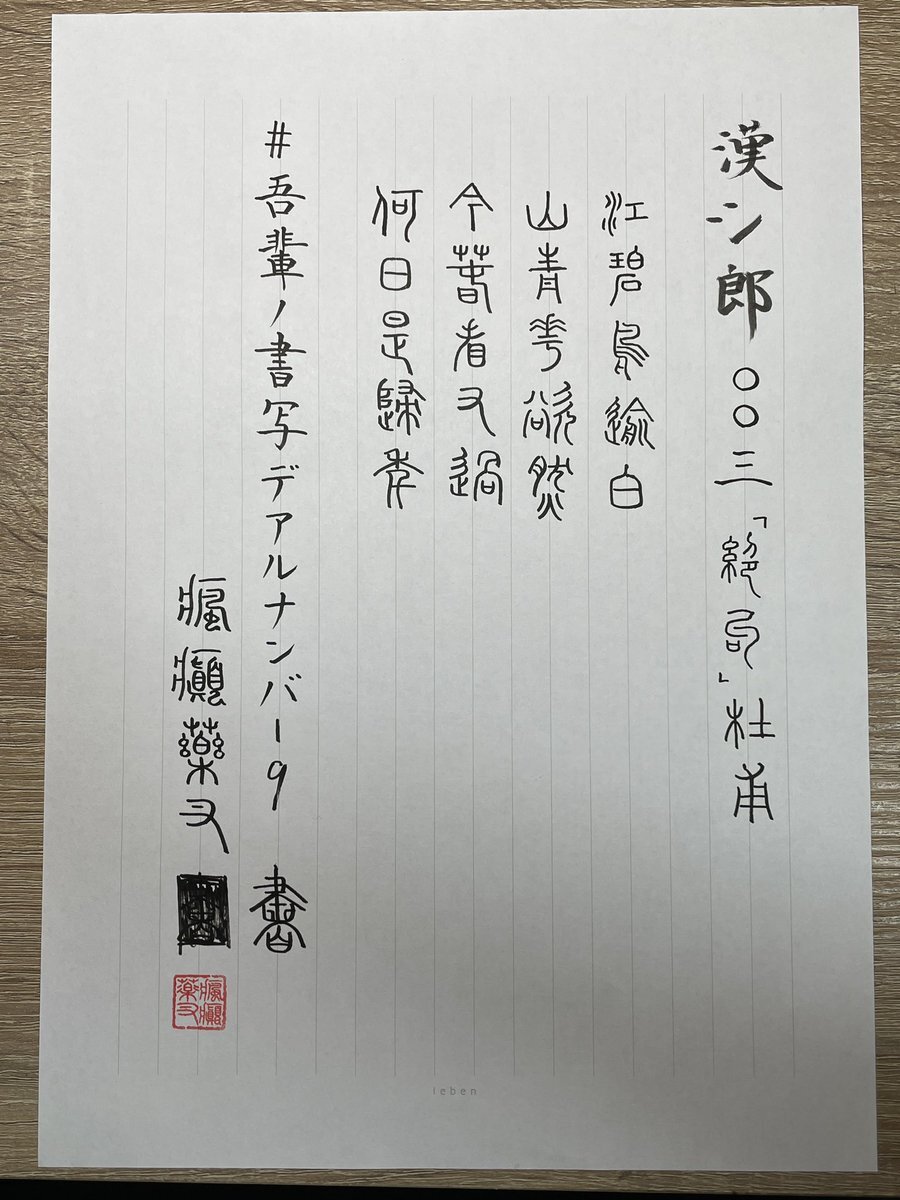 漢シ郎〇〇三「絶句」杜甫
江碧鳥逾白
山青花欲然
今春看又過
何日是歸年
#吾輩ノ書写デアルナンバー9 書
瘋癲藥又
瘋癲藥又
ieben